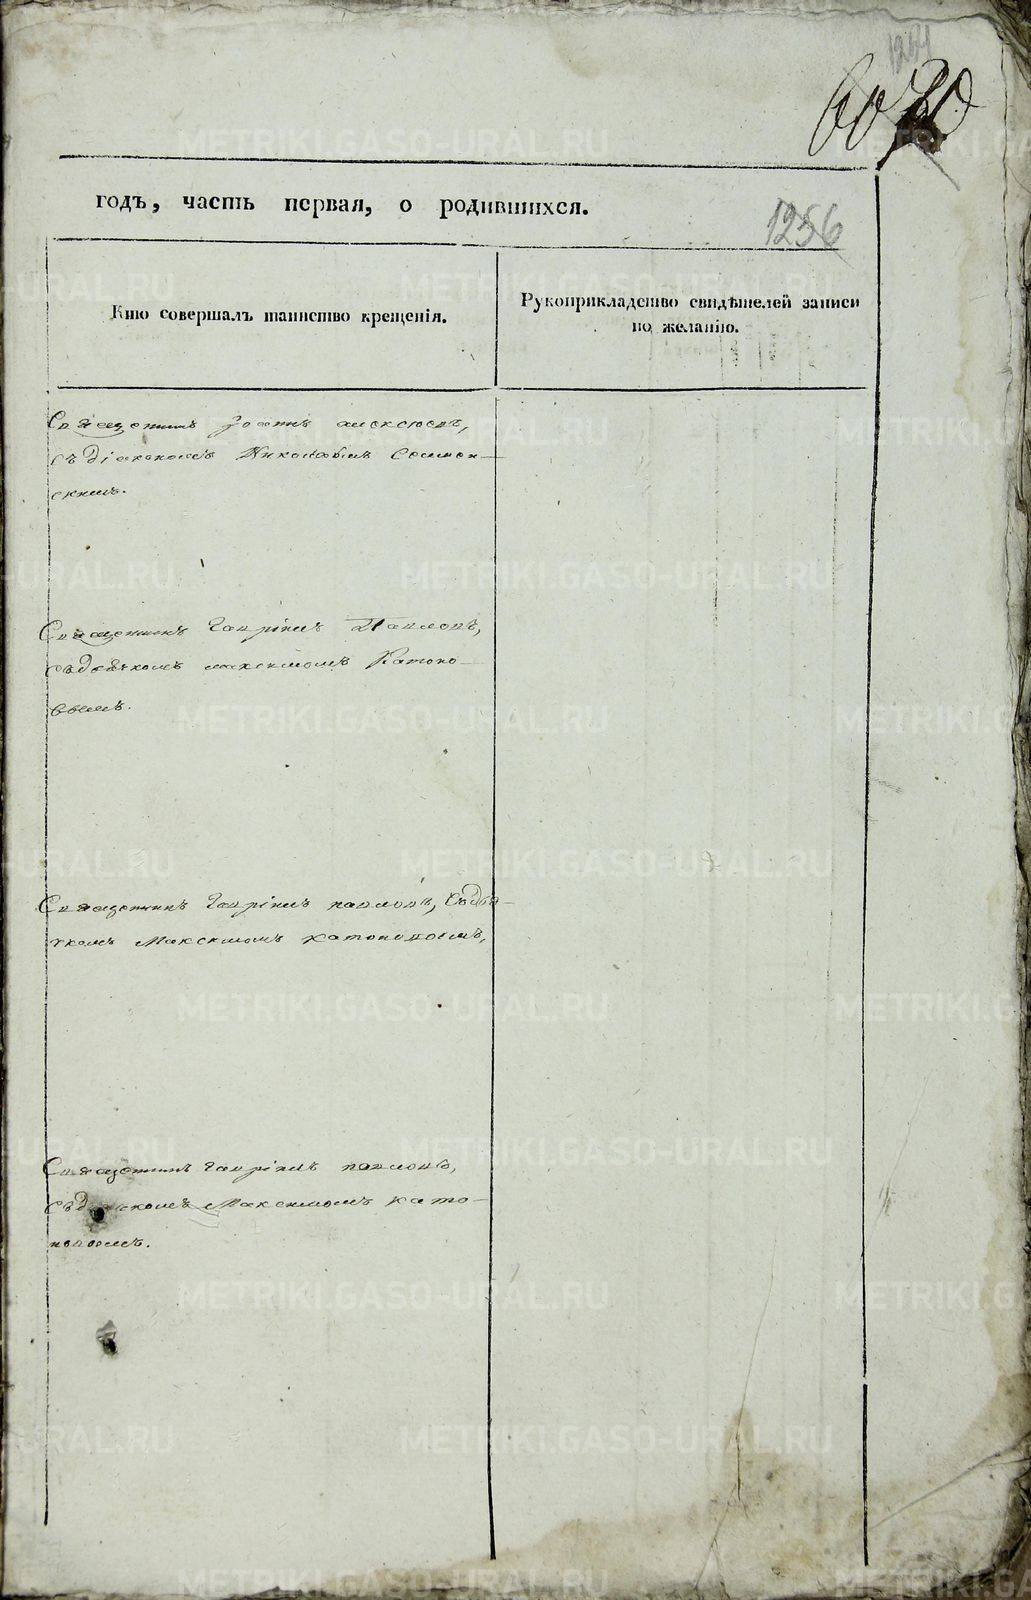 1264
60
годъ, часть первая, о родившихся.
1256
Кто совершалъ таинство крещенія.
Рукоприкладство свидѣтелей записи
по желанію.
Священникъ Іоаннъ Алексѣевъ,
съ діакономъ Николаемъ Сомон-
скимъ.
Священникъ Гавріилъ Павловъ,
съ дьячкомъ Максимомъ Катоно-
вымъ.
Священникъ Гавріилъ Павловъ, съ дья-
чкомъ Максимомъ Катоновымъ,
Священникъ Гавріилъ Павловъ,
съ дьячкомъ Максимомъ Като-
новымъ.
METRIKI.GASO-URAL.RU